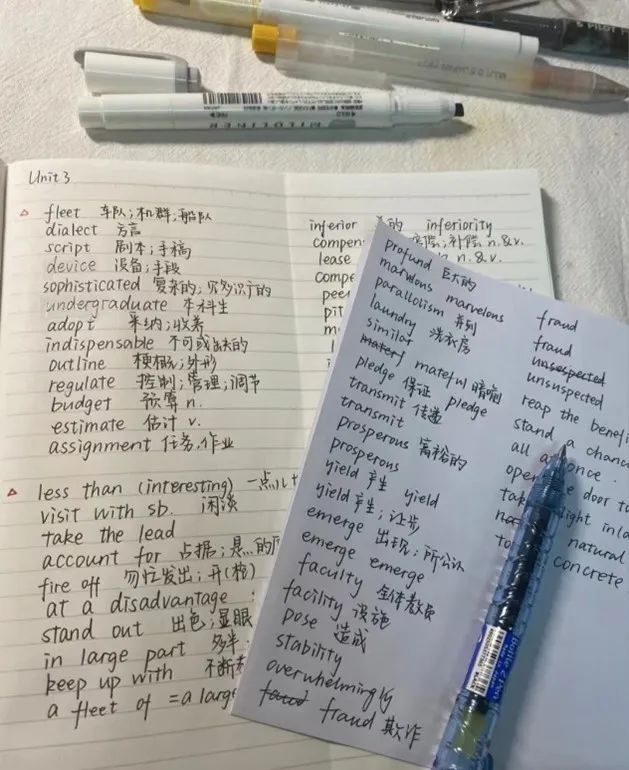 MILDLINER
PILOT
Unit 3
fleet 车队;机群;船队
dialect 方言
script 剧本;手稿
device 设备;手段
sophisticated 复杂的;见多识广的
undergraduate 本科生
adopt 采纳;收养
indispensable 不可或缺的
outline 梗概;外形
regulate 控制;管理;调节
budget 预算 n.
estimate 估计 v.
assignment 任务,作业
less than (interesting) 一点儿
visit with sb. 闲谈
take the lead
account for 占据;是…的
fire off 匆忙发出;开(枪)
at a disadvantage
stand out 出色;显眼
in large part 多半
keep up with 不断
a fleet of = a large
inferior 的 inferiority
compen 补偿 n.&v.
lease n.&v.
compe
peer
pit
profund 巨大的
marvlous marvelous
parallolism 并列
laundry 洗衣房
similar
mateful 暗
pledge 保证 pledge
transmit 传递
transmit
prosperous 富裕的
prosperous
yield 产生 yield
yield 产生;让步
emerge 出现;所公认
emerge emerge
faculty 全体教员
facility 设施
pose 造成
stability
overwhelmingly
fraud 欺诈
fraud
fraud
unsespected
unsuspected
reap the benefi
stand a chanc
all at once.
open the door t
natural
concrete